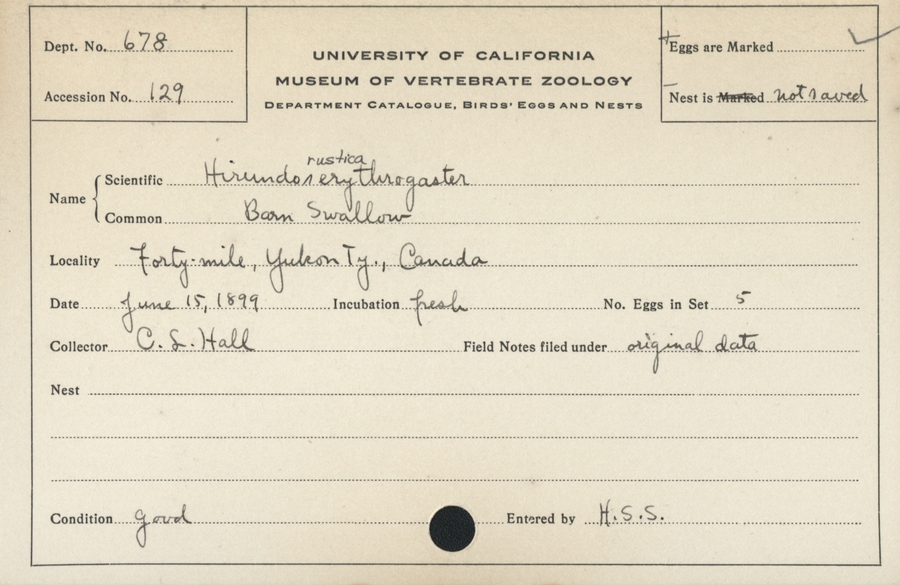 Dept. No. 678
Accession No. 129
UNIVERSITY OF CALIFORNIA
MUSEUM OF VERTEBRATE ZOOLOGY
DEPARTMENT CATALOGUE, BIRDS' EGGS AND NESTS
+Eggs are Marked ✓
- Nest is Marked not saved
rustica
Name { Scientific Hirundo erythrogaster
Common Barn Swallow
Locality Forty-mile, Yukon Ty., Canada
Date June 15, 1899 Incubation fresh No. Eggs in Set 5
Collector C. L. Hall Field Notes filed under original data
Nest
Condition good Entered by H.S.S.